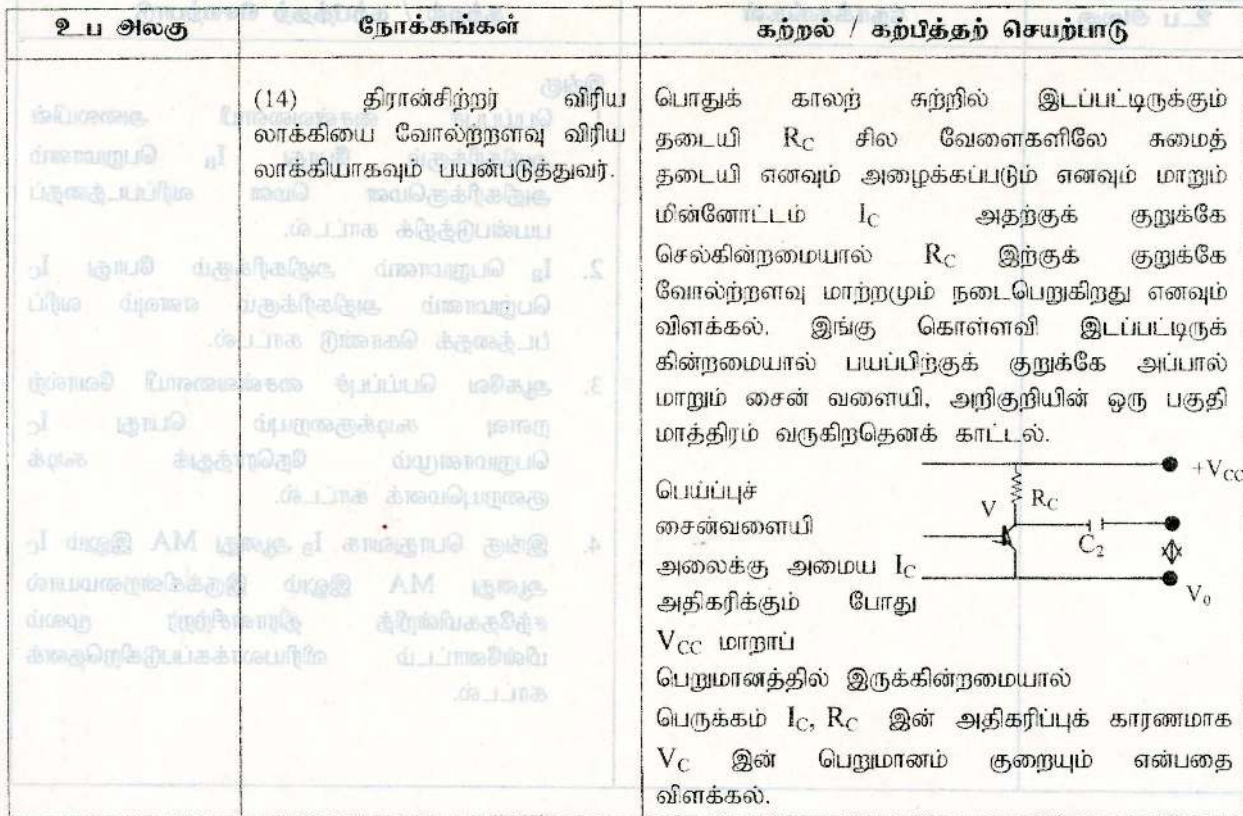 உப அலகு
நோக்கங்கள்
கற்றல் / கற்பித்தற் செயற்பாடு
(14) திரான்சிற்றர் விரிய
லாக்கியை வோல்ற்றளவு விரிய
லாக்கியாகவும் பயன்படுத்துவர்.
பொதுக் காலற் சுற்றில் இடப்பட்டிருக்கும்
தடையி R_C சில வேளைகளிலே சுமைத்
தடையி எனவும் அழைக்கப்படும் எனவும் மாறும்
மின்னோட்டம் I_C அதற்குக் குறுக்கே
செல்கின்றமையால் R_C இற்குக் குறுக்கே
வோல்ற்றளவு மாற்றமும் நடைபெறுகிறது எனவும்
விளக்கல். இங்கு கொள்ளவி இடப்பட்டிருக்
கின்றமையால் பயப்பிற்குக் குறுக்கே அப்பால்
மாறும் சைன் வளையி, அறிகுறியின் ஒரு பகுதி
மாத்திரம் வருகிறதெனக் காட்டல்.
+V_CC
R_C
V
C_2
V_0
பெய்ப்புச்
சைன்வளையி
அலைக்கு அமைய I_C
அதிகரிக்கும் போது
V_CC மாறாப்
பெறுமானத்தில் இருக்கின்றமையால்
பெருக்கம் I_C, R_C இன் அதிகரிப்புக் காரணமாக
V_C இன் பெறுமானம் குறையும் என்பதை
விளக்கல்.